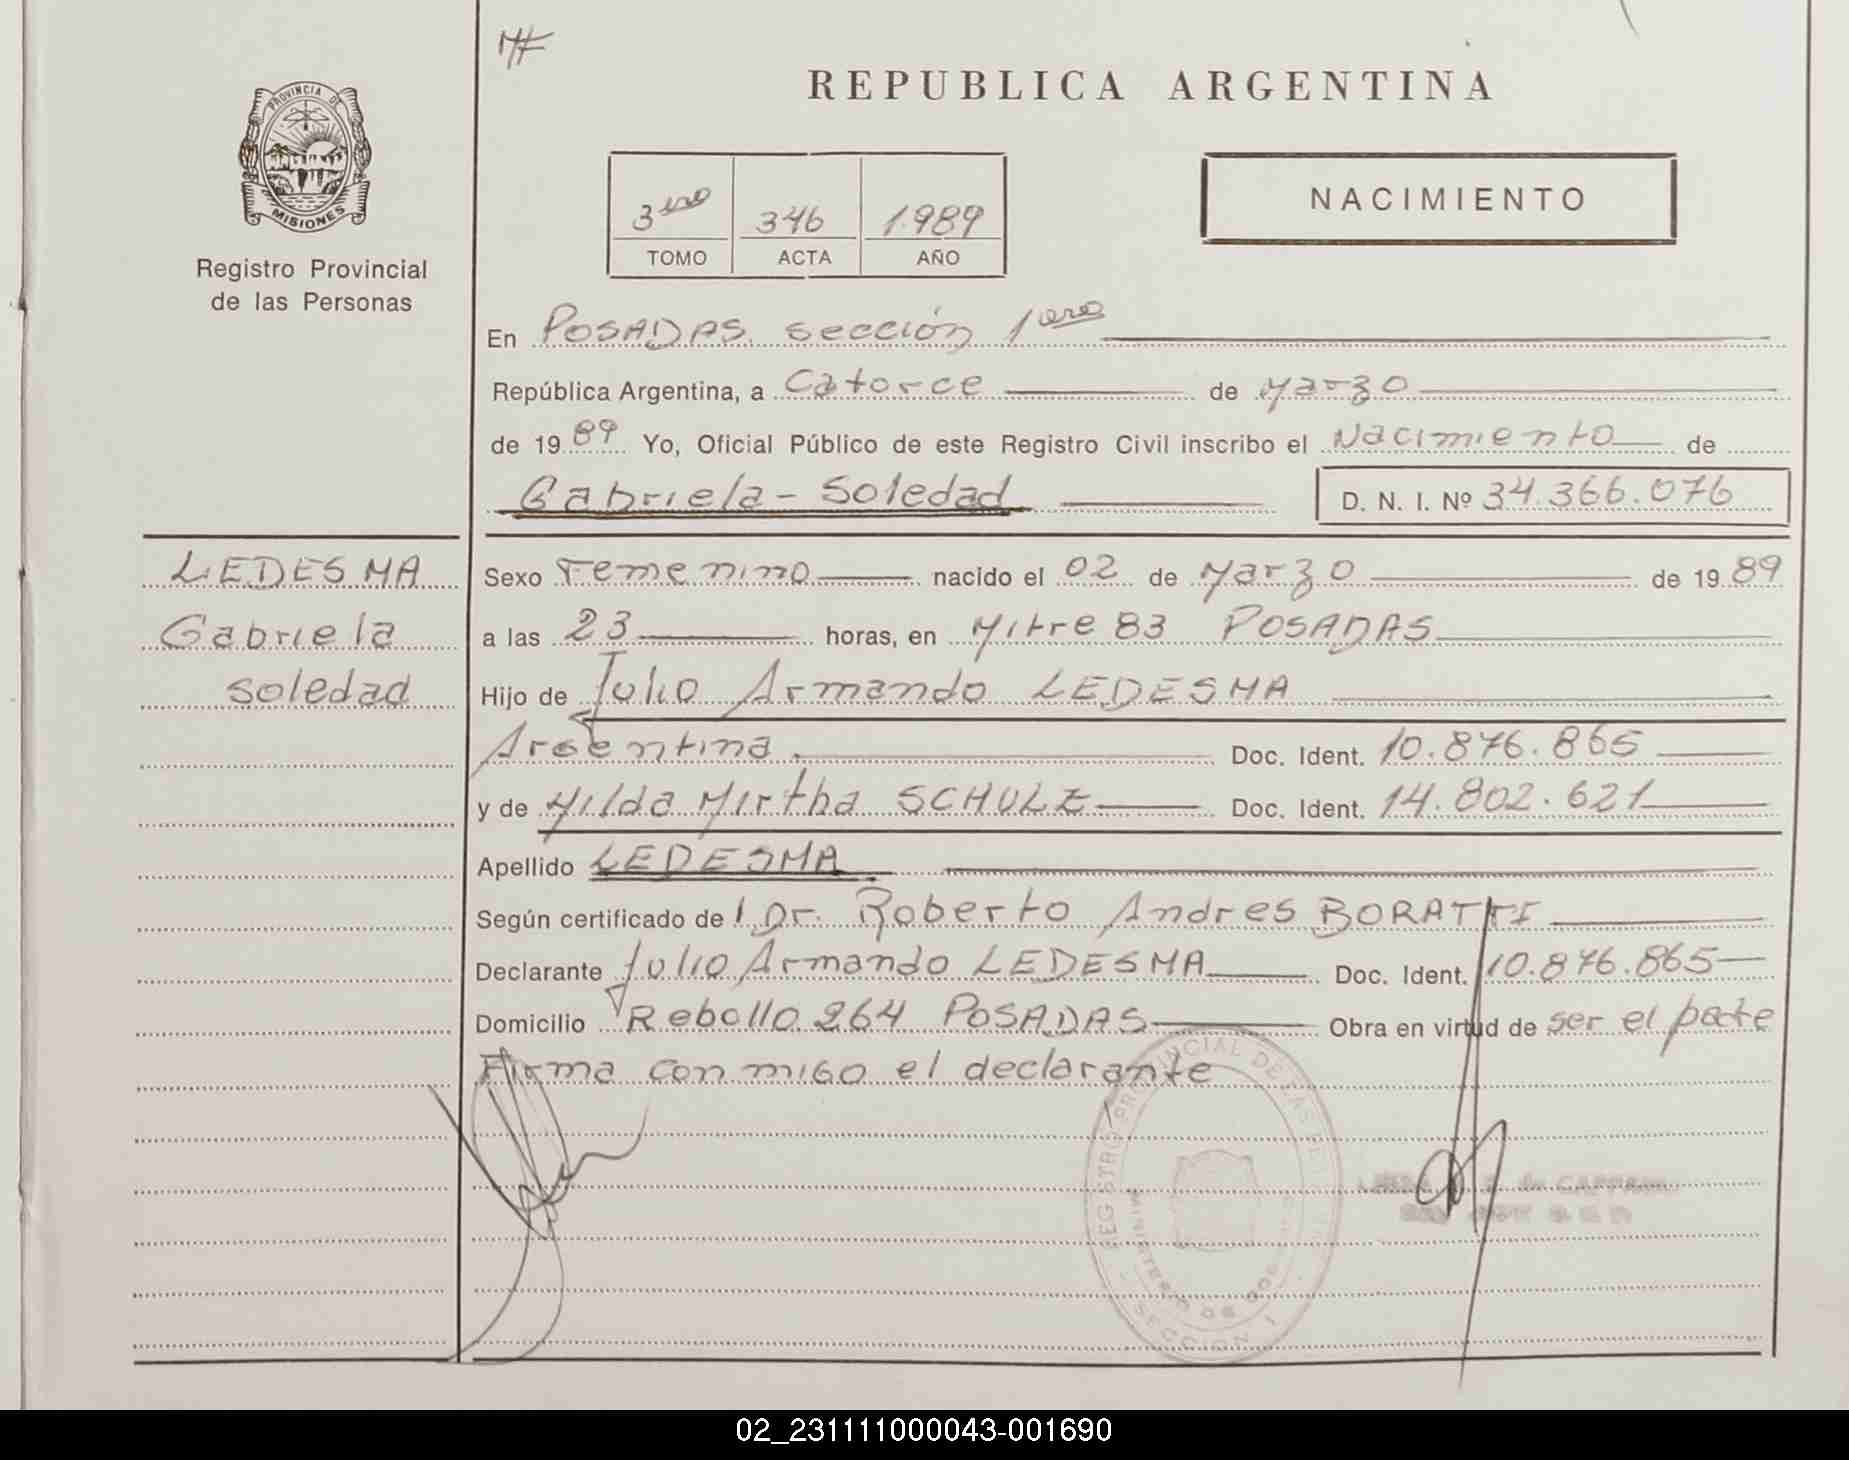 PROVINCIA DE
MISIONES
Registro Provincial
de las Personas
REPUBLICA ARGENTINA
3ero 346 1.989
TOMO ACTA AÑO
NACIMIENTO
En POSADAS sección 1era
República Argentina, a Catorce de Marzo
de 1989 Yo, Oficial Público de este Registro Civil inscribo el Nacimiento de
Gabriela - Soledad D. N. I. Nº 34.366.076
LEDESMA
Gabriela
Soledad
Sexo Femenino nacido el 02 de Marzo de 1989
a las 23 horas, en Mitre 83 POSADAS
Hijo de Julio Armando LEDESMA
Argentina. Doc. Ident. 10.876.865
y de Hilda Mirtha SCHULZ Doc. Ident. 14.802.621
Apellido LEDESMA
Según certificado de l Dr. Roberto Andres BORATTI
Declarante Julio Armando LEDESMA Doc. Ident. 10.876.865
Domicilio Rebollo 264 POSADAS Obra en virtud de ser el padre
Firma con migo el declarante
REGISTRO PROVINCIAL DE LAS
MINISTERIO DE GOB
SECCION 1
02_231111000043-001690